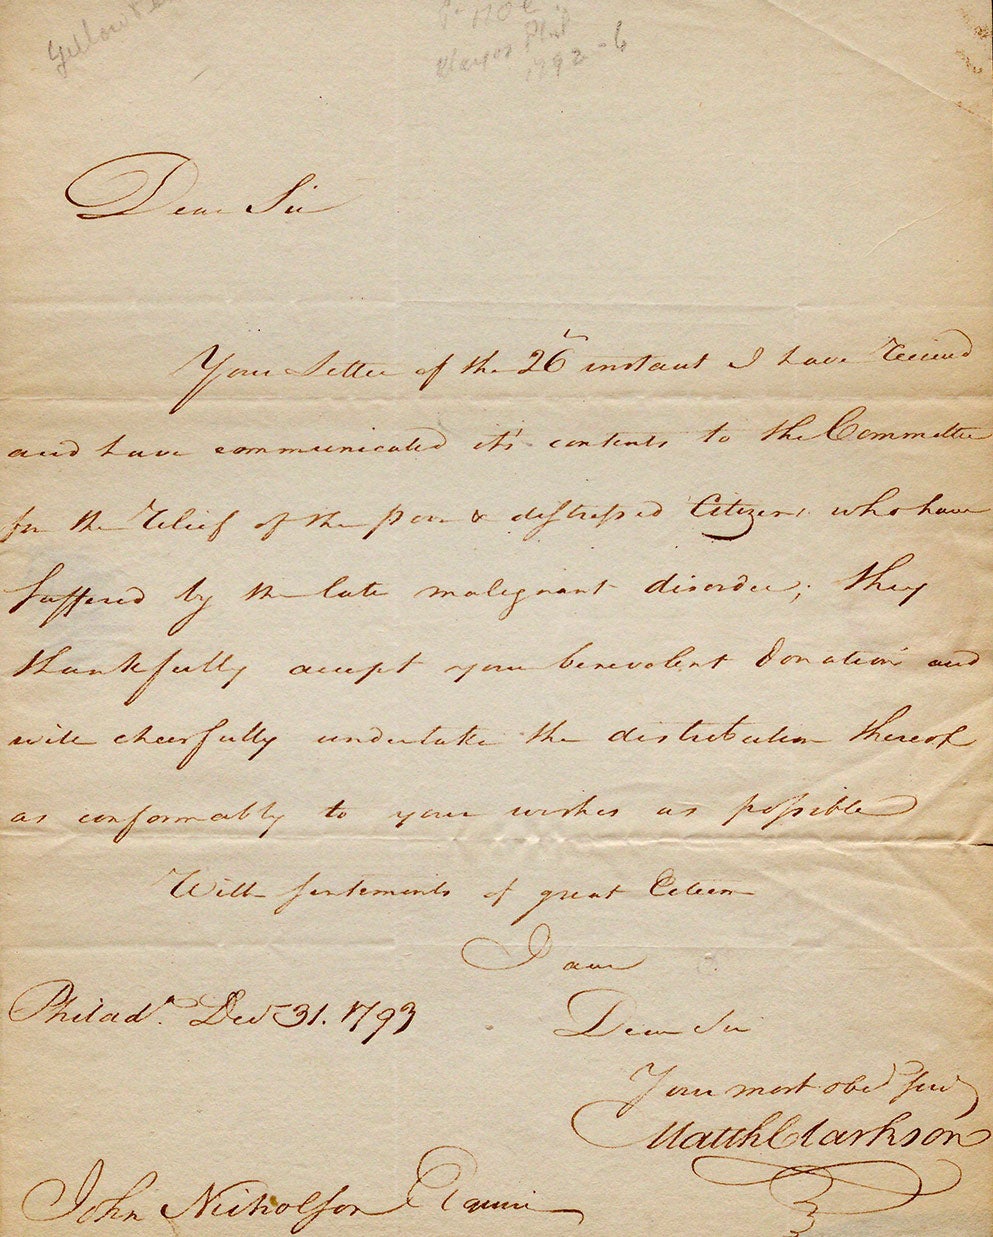 Yellow Fe
Mayor Phil
1792-6
Dear Sir
Your Letter of the 26 instant I have received
and have communicated it's contents to the Committee
for the relief of the poor & distressed Citizens, who have
suffered by the late malignant disorder; they
thankfully accept your benevolent donation and
will cheerfully undertake the distribution thereof
as conformably to your wishes as possible
With sentiments of great Esteem
I am
Philadᵃ. Decʳ 31. 1793
Dear Sir
Your most obedᵗ servᵗ
Matth Clarkson
John Nicholson Esquire